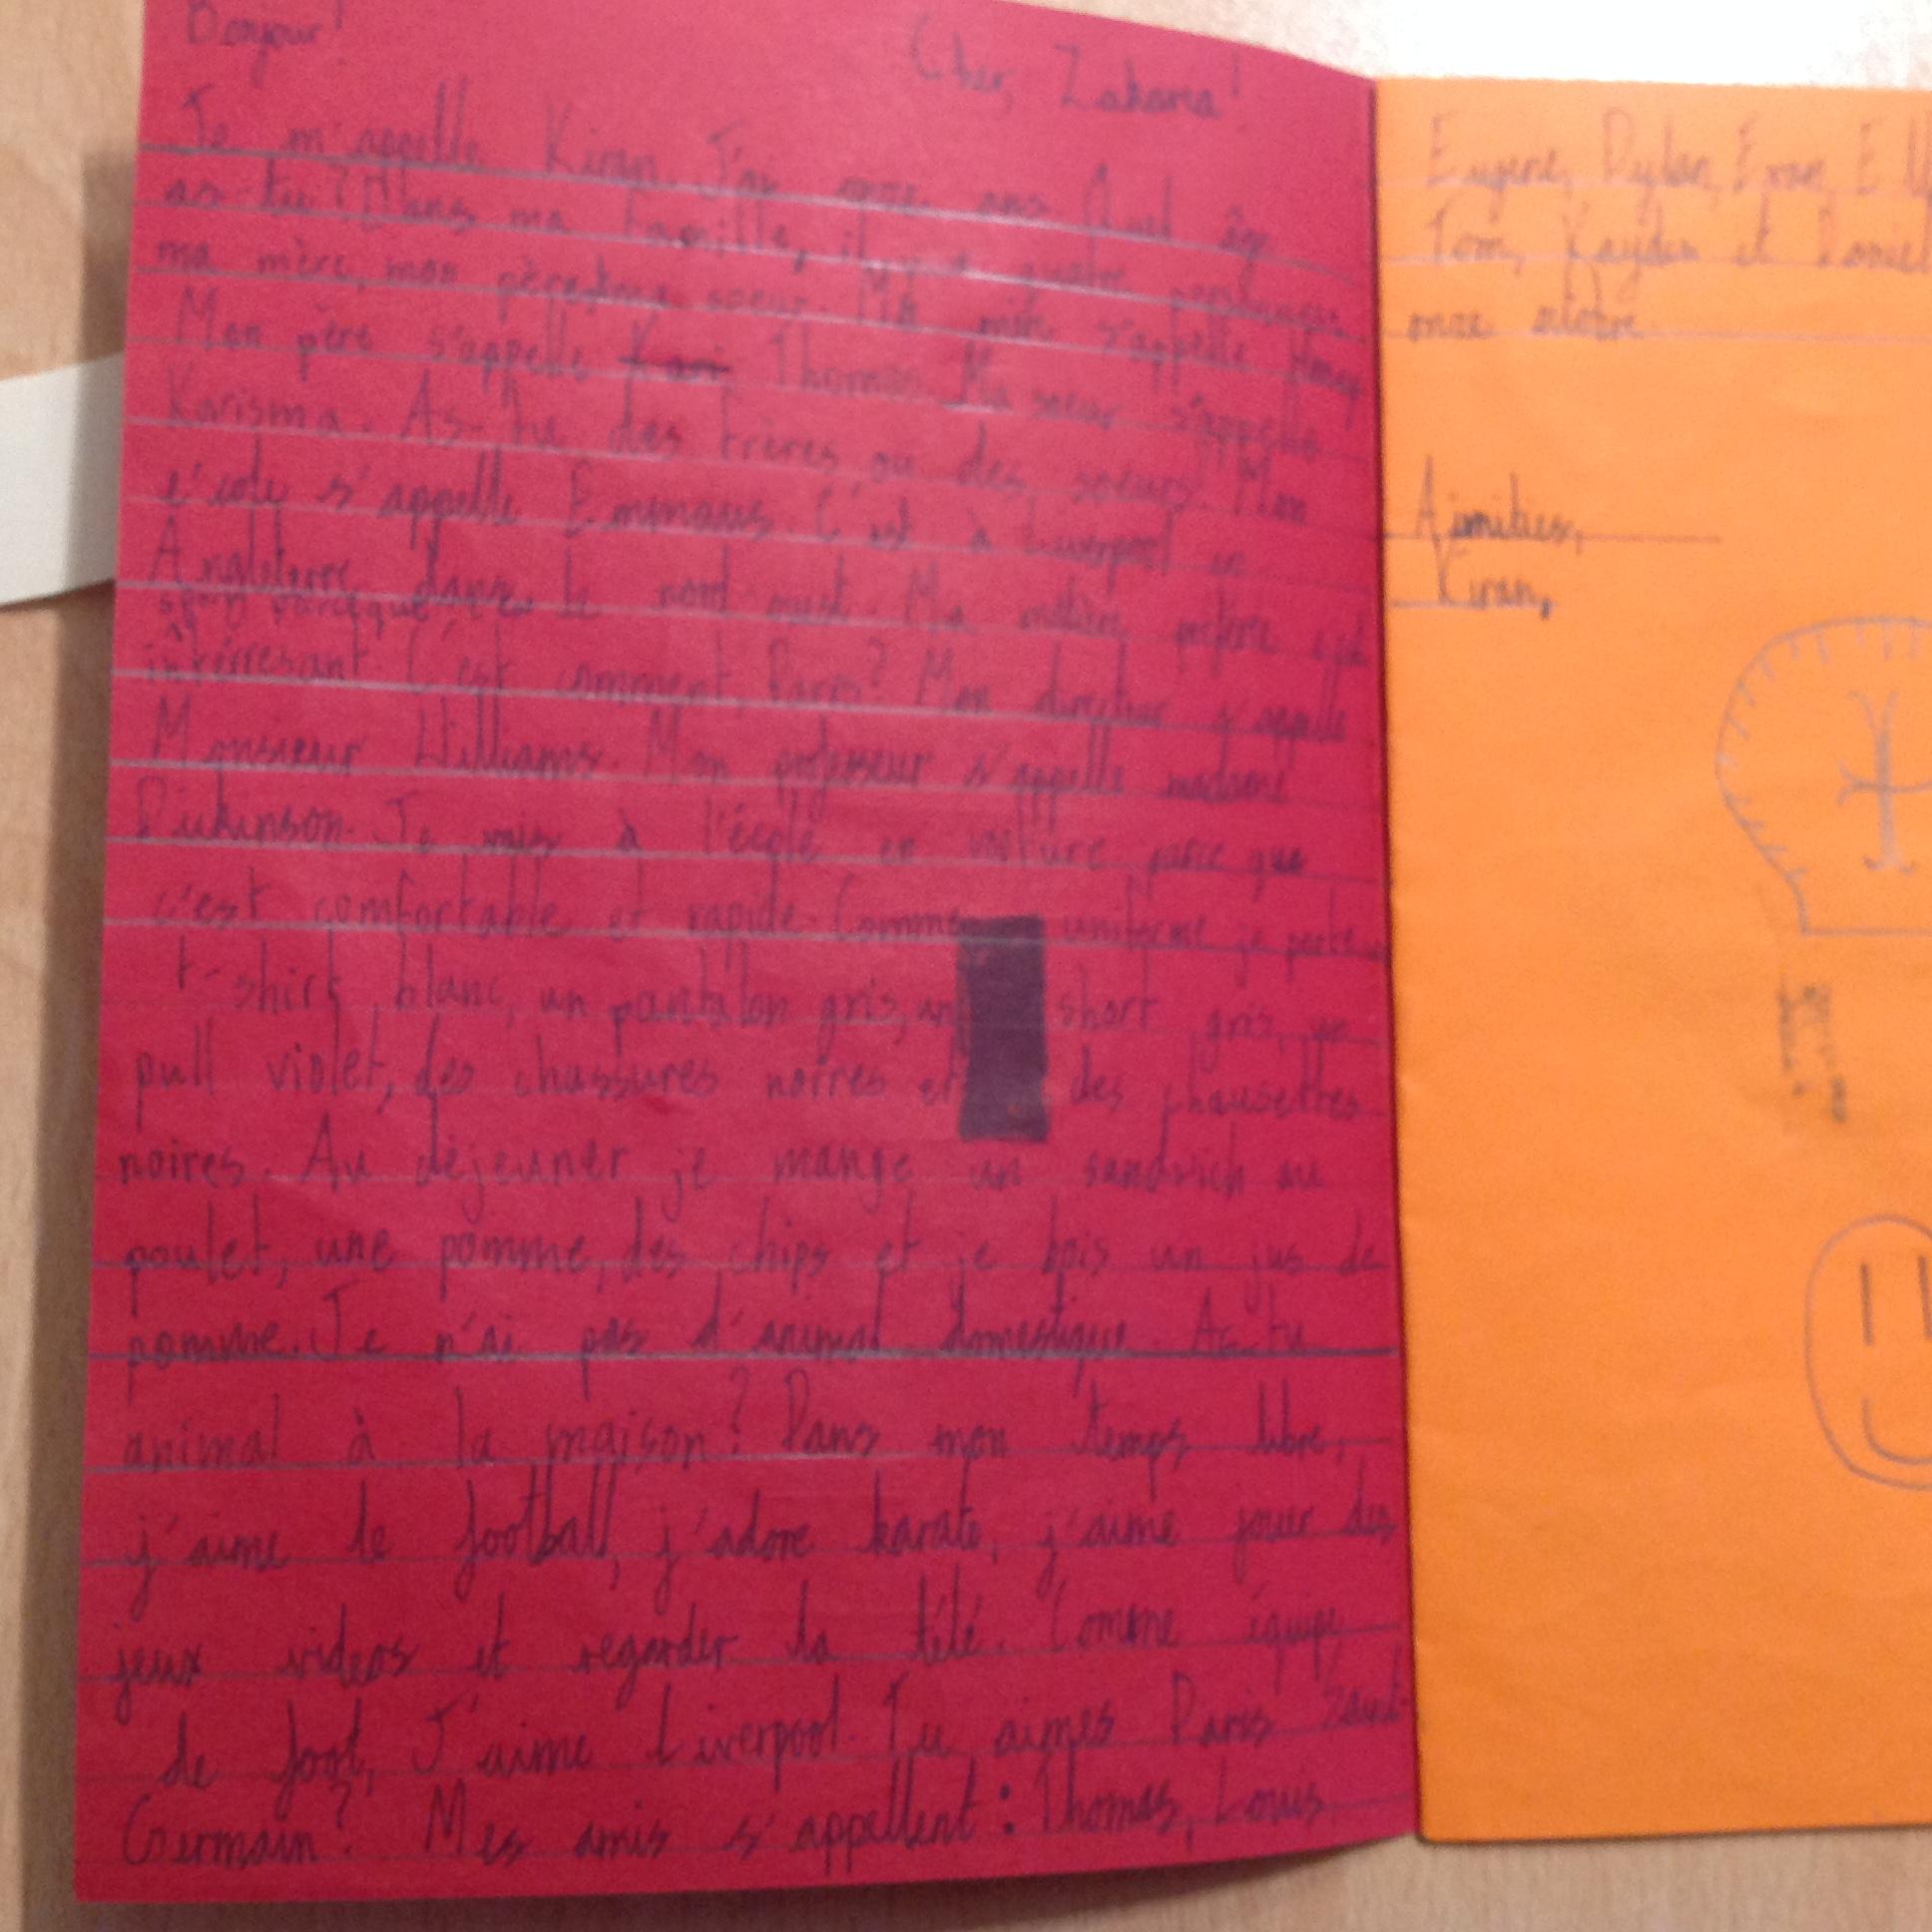 Bonjour!
Cher, Zakaria!
Je m'appelle Kiran. J'ai onze ans. Quel âge
as-tu? Dans ma famille, il y a quatre personnes.
ma mère, mon père et ma soeur. Ma mère s'appelle
Mon père s'appelle Thomas. Ma soeur s'appelle
Karisma. As-tu des frères, ou des soeurs? Mon
s'appelle Emmaus. C'est à Liverpool en
Angleterre, dans le nord ouest. Ma matière préférée est
sport parce que c'est
intérresant. C'est comment, Paris? Mon directeur s'appelle
Monsieur Williams. Mon professeur s'appelle madame
Dickinson. Je vais à l'école en voiture parce que
c'est comfortable et rapide. Comme uniforme je porte un
t-shirt blanc, un pantalon gris, un short gris, un
pull violet, des chassures noires et des chausettes
noires. Au déjeuner je mange un sandwich au
poulet, une pomme, des chips et je bois un jus de
pomme. Je n'ai pas d'animal domestique. As-tu
animal à la maison? Dans mon temps libre,
j'aime le football, j'adore karate, j'aime jouer des
jeux videos et regarder la télé. Comme équipe
de foot, J'aime Liverpool. Tu aimes Paris Saint-
Germain? Mes amis s'appellent: Thomas, Louis
Eugene, Dylan, Evan,
Tom, Kayden et Daniel
onze
Kiran,